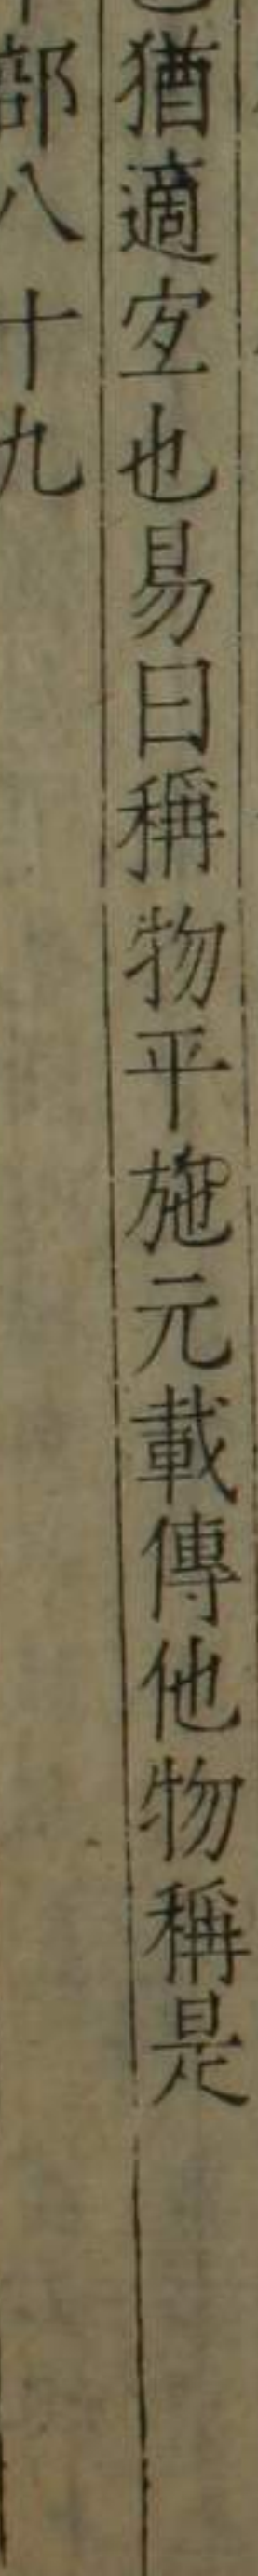 猶適宐也易曰稱物平施元載傳他物稱是
部八十九